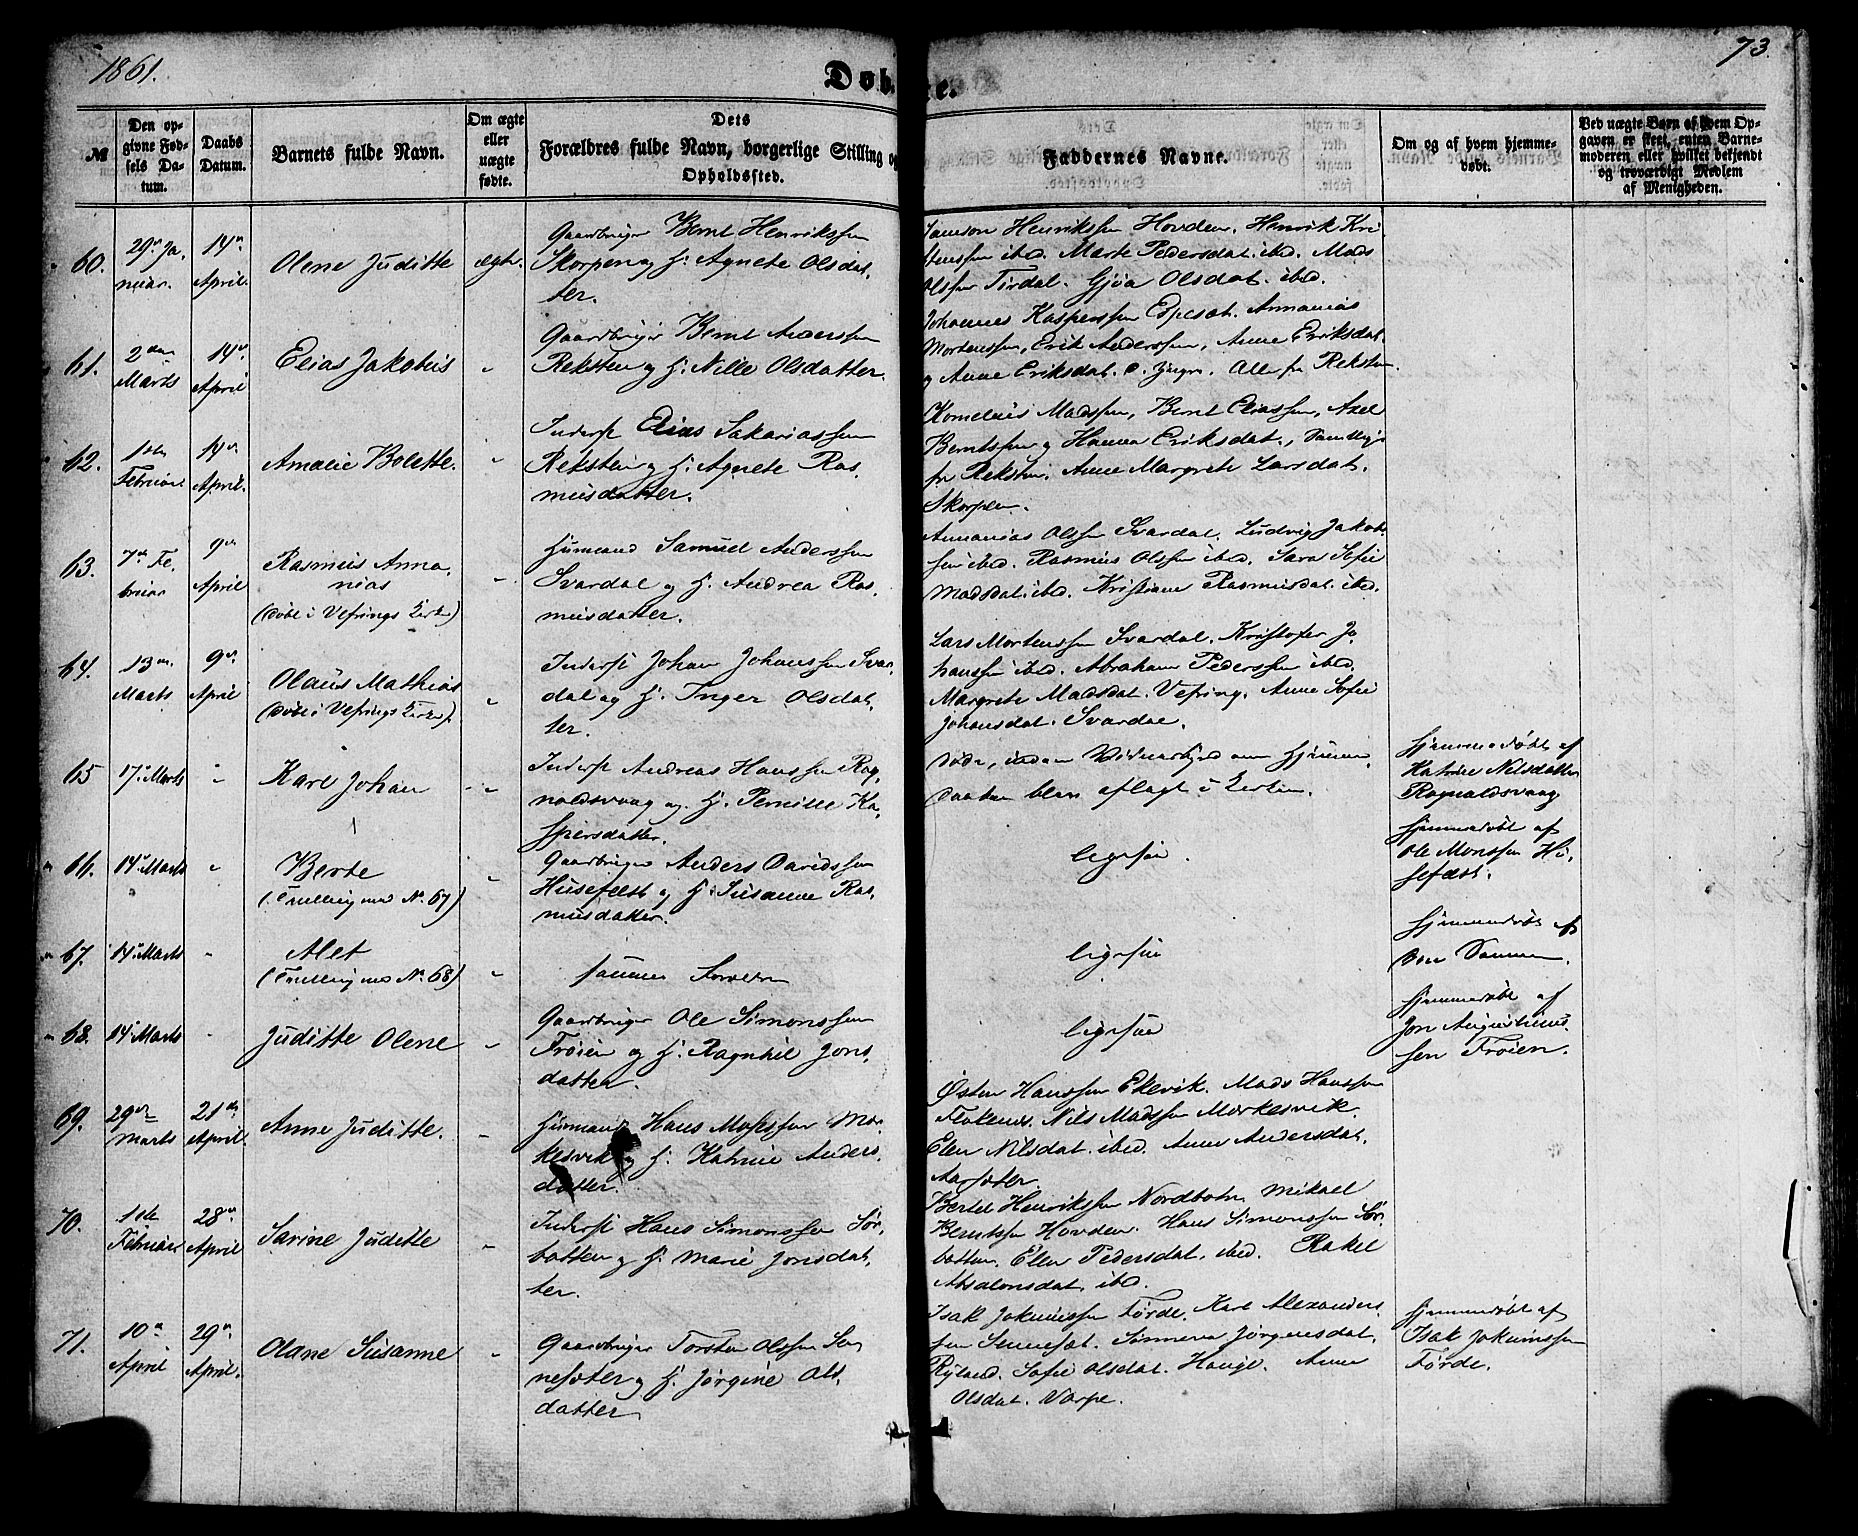 1861.
73.
Døb
te.
№
Den op-
givne Fød-
sels Da-
tum.
Daabs
Datum.
Barnets fulde Navn.
Om ægte
eller
uægte
fødte.
Dets
Forældres fulde Navn, borgerlige Stilling og
Opholdssted.
Faddernes Navne.
Om og af hvem hjemme-
døbt.
Ved uægte Barn af hvem Op-
gaven er skeet, enten Barne-
moderen eller hvilket bekjendt
og troværdigt Medlem
af Menigheden.
60.
29de Ja-
nuar.
14de
April.
Olene Juditte
ægte.
Gaardbruger Bernt Henrikssen
Skorpen og H. Agnete Olsdat-
ter.
Samson Henrikssen Hovden. Henrik Kri
stenssen ibd. Marte Pedersdat. ibd. Mads
Olssen Tirdal. Gjøa Olsdat. ibd.
61.
2den
Marts
14de
April
Elias Jakobus
"
Gaardbruger Bernt Anderssen
Reksten og H. Nille Olsdatter.
Johannes Kasperssen Espeset. Annanias
Mortenssen, Erik Anderssen, Anne Eriksdat.
og Anne Eriksdat. d. yngre. Alle fra Reksten.
62.
1ste
Februar
14de
April.
Amalie Bolette.
"
Inderst Elias Sakariassen
Reksten og H. Agnete Ras-
musdatter.
Kornelius Madssen, Bernt Eliassen, Axel
Berntssen og Hanna Eriksdat., samtlige
fra Reksten. Anne Margrete Larsdat.
Skorpen.
63.
7de Fe-
bruar
9de
April
Rasmus Anna-
nias
(døbt i Vefrings Kirke)
"
Husmand Samuel Anderssen
Svardal og H. Andrea Ras-
musdatter.
Annanias Olssen Svardal. Ludvig Jakob-
sen ibd. Rasmus Olssen ibd. Sara Sofie
Madsdat. ibd. Kristiane Rasmusdat. ibd.
64.
13de
Marts
9de
April
Olaus Mathias
(døbt i Vefrings Kirke).
"
Inderst Johan Johanssen Svar-
dal og H. Inger Olsdat-
ter.
Lars Mortenssen Svardal. Kristofer Jo
hanssen ibd. Abraham Pederssen ibd.
Margrete Madsdat. Vefring. Anne Sofie
Johansdat. Svardal.
65
17de Marts
"
Karl Johan
"
Inderst Andreas Hanssen Rog-
noldsvaag og H. Pernille Ka-
spersdatter.
døde, inden Vidnesbyrd om Hjemme-
daaben blev aflagt i Kirken.
Hjemmedøbt af
Katrine Nilsdatter
Rognaldsvaag
66.
14de Marts
"
Berte
(Tvilling med No. 67)
"
Gaardbruger Anders Davidssen
Husefest og H. Susanne Ras-
musdatter.
ligesaa.
Hjemmedøbt af
Ole Monssen Hu-
sefæst.
67.
14de Marts
"
Alet
(Tvilling med No. 68)
"
samme Forældre
ligesaa
Hjemmedøbt af
den Samme.
68.
14de Marts
"
Juditte Olene
"
Gaardbruger Ole Simonssen
Frøien og H. Ragnhil Jons-
datter.
ligesaa
Hjemmedøbt af
Jon Augustinus-
sen Frøien.
69.
29de
Marts
21de
April.
Anne Juditte.
"
Husmand Hans Mosessen Mor-
kesvik og H. Katrine Anders-
datter.
Østen Hanssen Ekevik. Mads Hanssen
Flokenes. Nils Madssen Morkesvik.
Elen Nilsdat. ibd. Anne Andersdat.
Aarsæter
70.
1ste
Februar
28de
April
Sarine Juditte
"
Inderst Hans Simonssen Sør-
botten og H. Marie Jonsdat-
ter.
Bertel Henrikssen Nordbotn. Mikael
Berntssen Hovden. Hans Simonssen Sør-
botten. Ellen Pedersdat. ibd. Rakel
Absalonsdat. ibd.
71.
10de
April
29de
April.
Olane Susanne
"
Gaardbruger Torsten Olssen Sen-
nesæter og H. Jørgine Ols-
datter
Isak Jokumssen Førde. Karl Alexanders-
sen Sennesæt. Simena Jørgensdat.
Ryland. Sofie Olsdat. Hauge. Anne
Olsdat. Varpe.
Hjemmedøbt af
Isak Jokumssen
Førde.